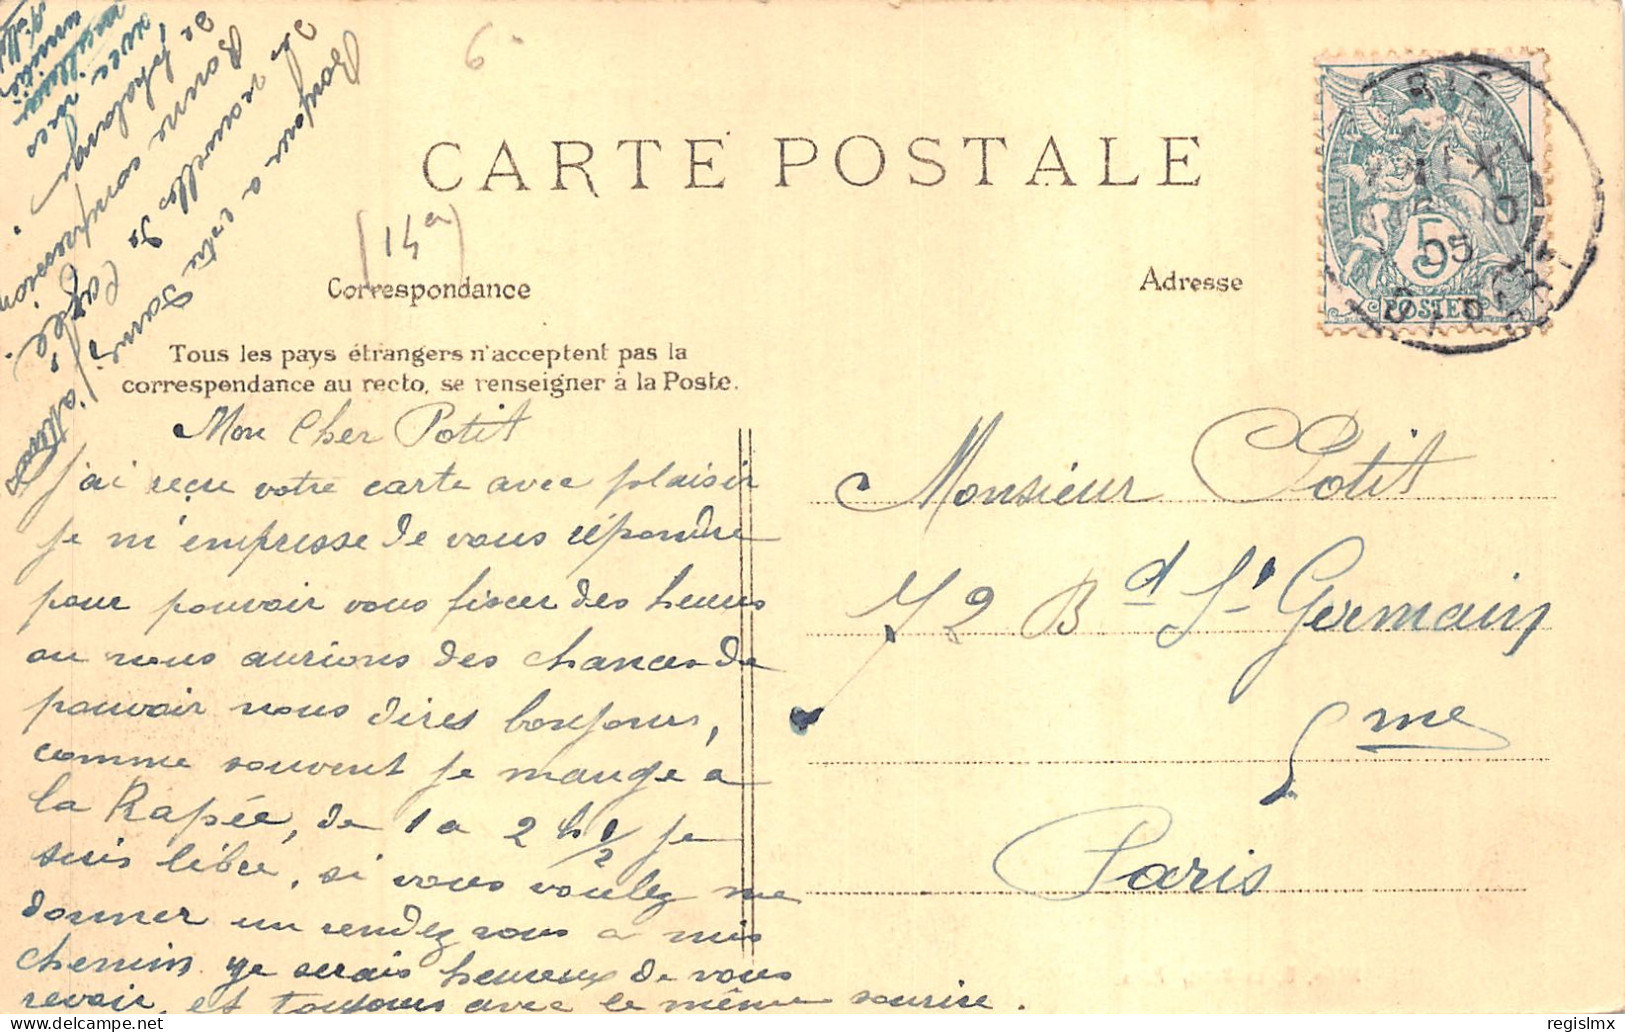 6
CARTE POSTALE
(14a)
Correspondance
Adresse
Tous les pays étrangers n'acceptent pas la
correspondance au recto, se renseigner à la Poste.
Mon Cher Potit
j'ai reçu votre carte avec plaisir
je m'empresse de vous répondre
pour pouvoir vous fixer des heures
ou nous aurions des chances de
pouvoir nous dires bonjours,
comme souvent je mange a
la Rapée, de 1 a 2 h 1/2 je
suis libre, si vous voulez me
donner un rendez vous a mis
chemin je serais heureux de vous
revoir, et toujours avec le même sourire.
Bonjour a votre
de nouvelles
de Bonne compression
phalanges
avec mes
Monsieur Potit
72 Bd St Germain
5me
Paris
5
POSTES
regislmx